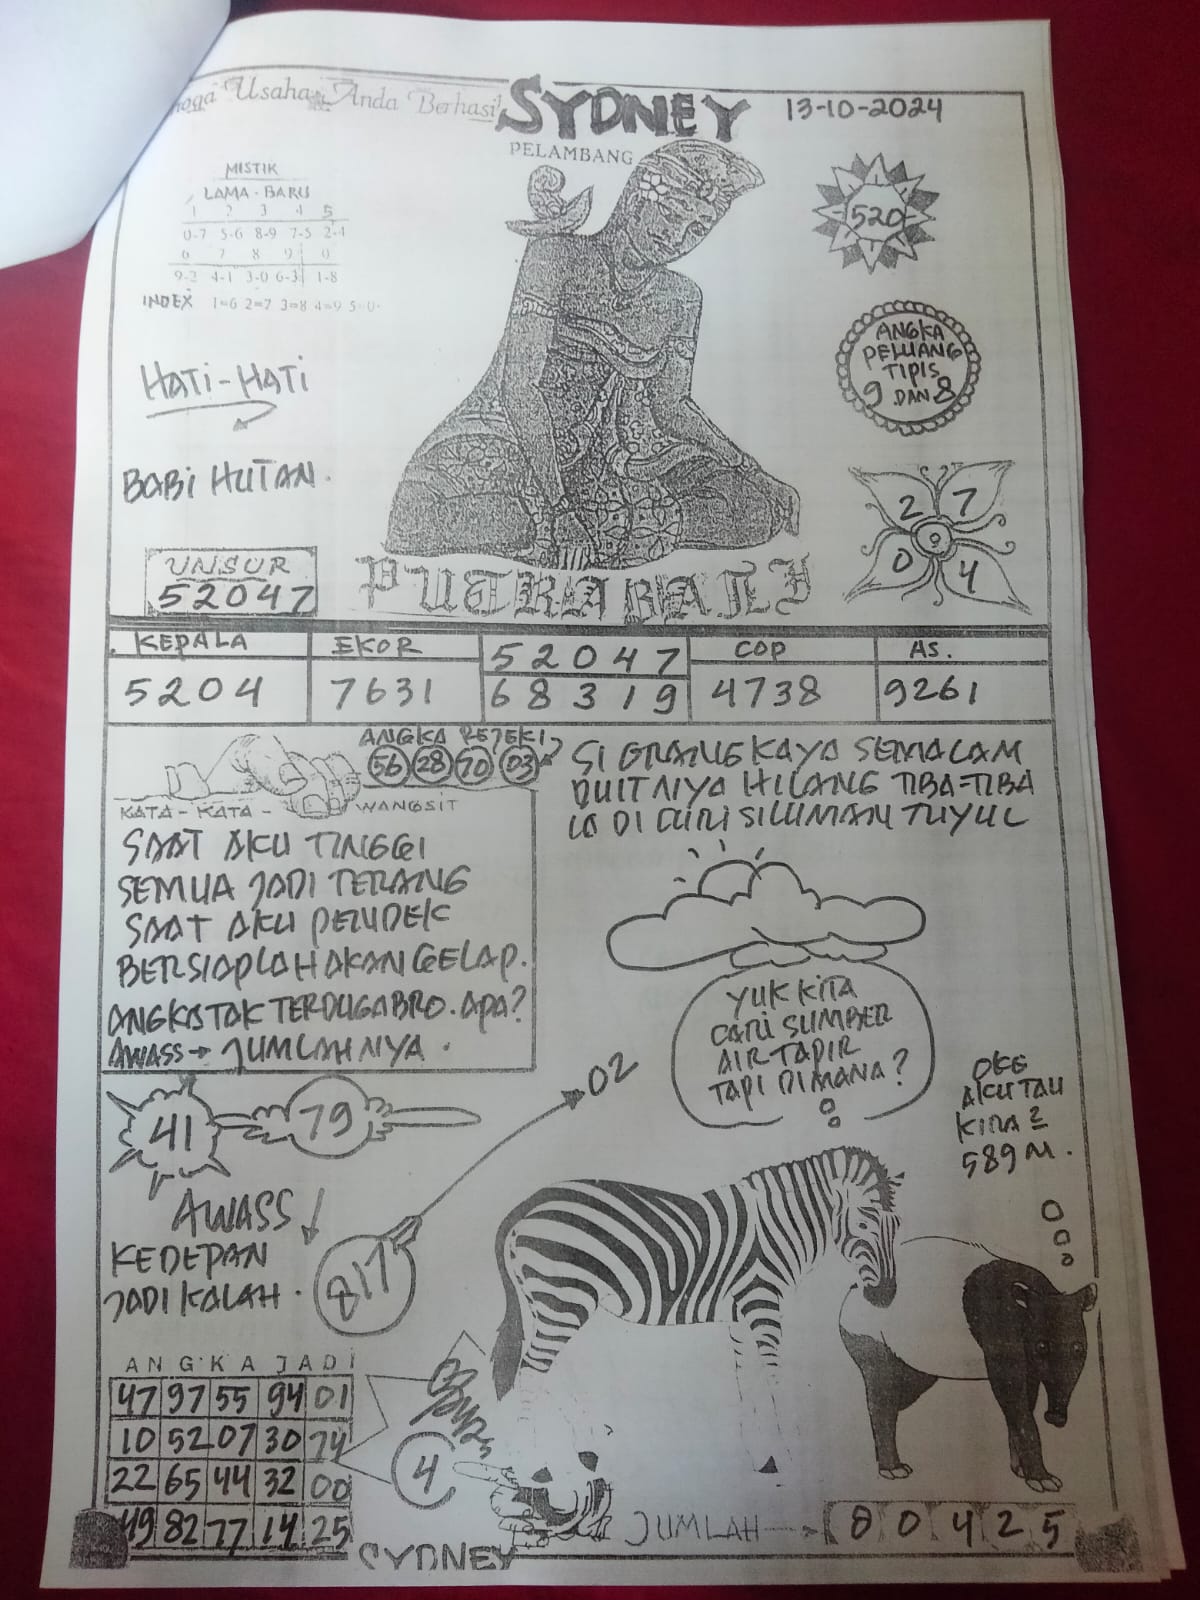 Usaha Anda Berhasil
SYDNEY
13-10-2024
PELAMBANG
MISTIK
LAMA - BARU
1 2 3 4 5
0-7 5-6 8-9 7-5 2-4
6 7 8 9 0
9-2 4-1 3-0 6-3 1-8
INDEX 1=6 2=7 3=8 4=9 5=0
520
HATI-HATI
ANGKA
PELUANG
TIPIS
9 DAN 8
BABI HUTAN.
2 7
9
0 4
UNSUR
52047
PUTRA BALI
KEPALA EKOR 52047 COP AS.
5204 7631 68319 4738 9261
ANGKA REJEKI
56 28 70 03
KATA - KATA - WANGSIT
SAAT AKU TINGGI
SEMUA JADI TERANG
SAAT AKU PENDEK
BERSIAPLAH AKAN GELAP.
ANGKA TAK TERDUGA BRO. APA?
AWASS → JUMLAHNYA.
SI ORANG KAYA SEMALAM
DUITNYA HILANG TIBA-TIBA
LO DI CURI SILUMAN TUYUL
YUK KITA
CARI SUMBER
AIR TAPIR
TAPI DIMANA?
OKE
AKU TAU
KIRA2
589 M.
02
41 79
AWASS
KEDEPAN
JADI KALAH.
817
ANGKA JADI
47 97 55 94 01
10 52 07 30 74
22 65 44 32 00
49 82 77 14 25
4
JUMLAH → 8 0 4 2 5
SYDNEY